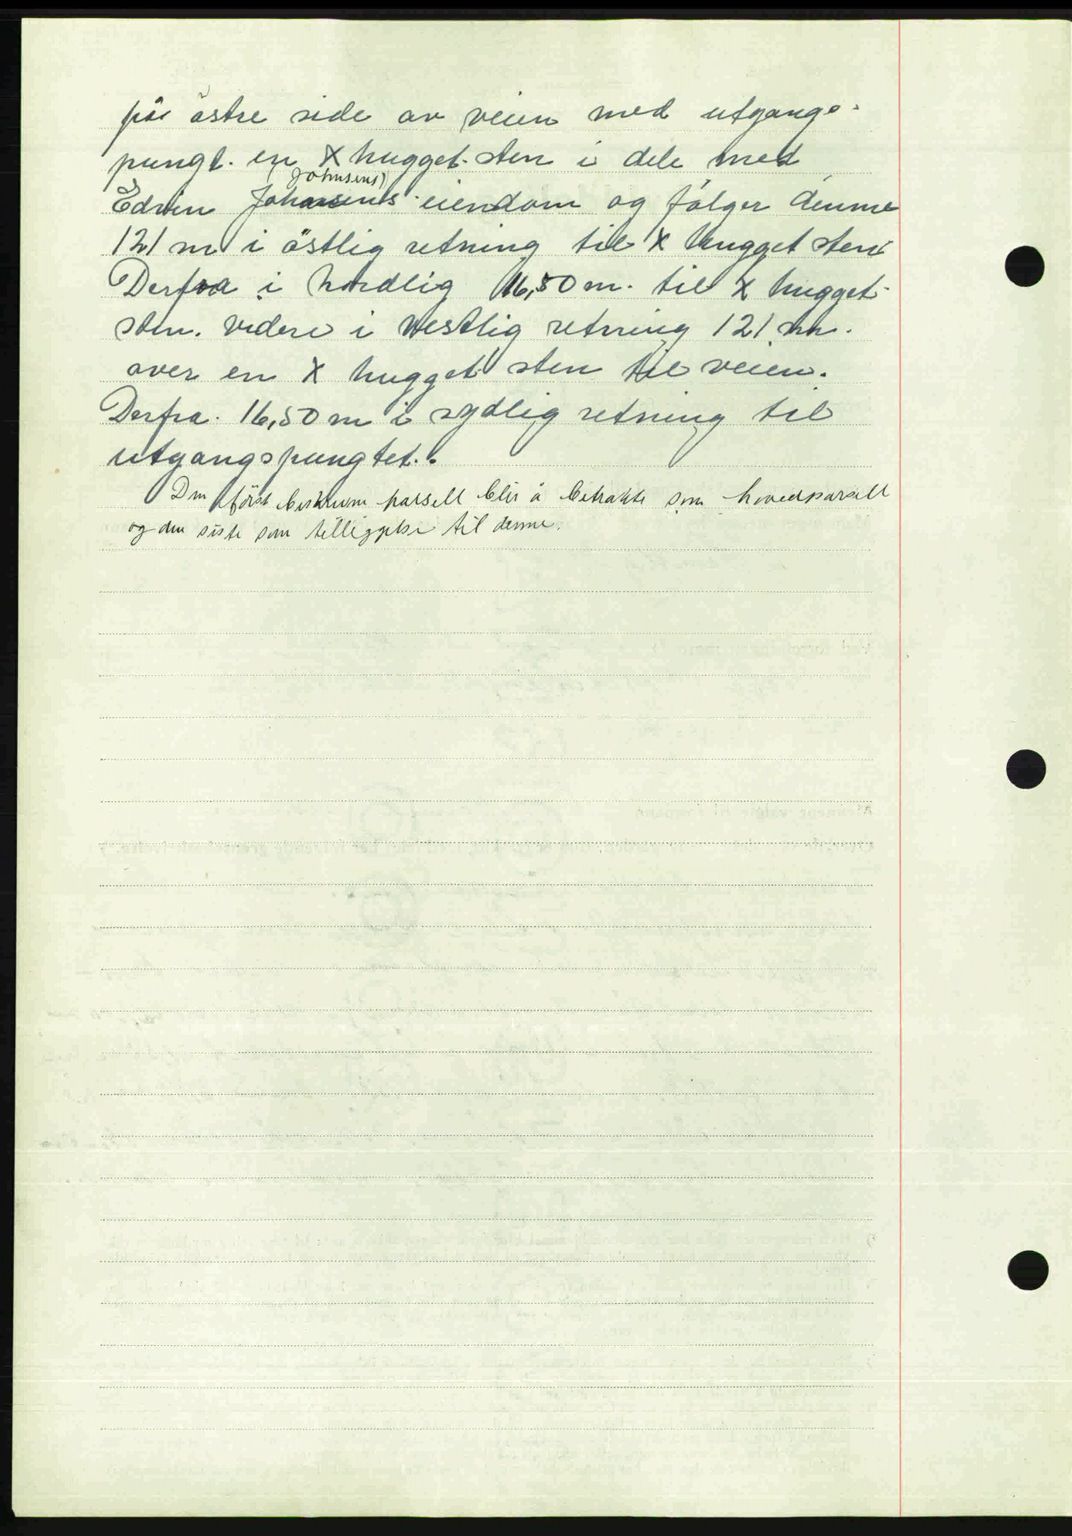 på östre side av veien med utgangs-
pungt. en X hugget sten i dele med
(Johnsens)
Edvin Johansens eiendom og fölger denne
121 m i östlig retning til X hugget sten
Derfra i nordlig 16,50 m. til X hugget
sten. videre i vestlig retning 121 m.
over en X hugget sten til veien.
Derfra. 16,50 m i sydlig retning til
utgangspungtet.
Den först beskrevne parsell blir å betrakte som hovedparsell
og den siste som tilleggelse til denne.